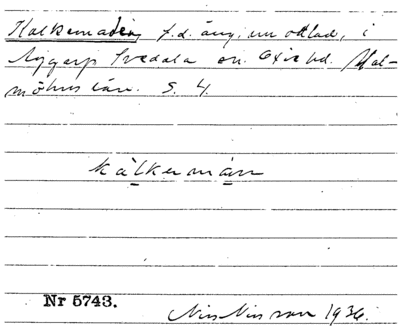 Kalkemaden f.d. äng, nu odlad, i
Aggarp Svedala sn. Oxie hd. Mal-
möhus län. S. 4.
kạ̊lkermạ̊n
Nr 5743.
Nils Nilsson 1936.